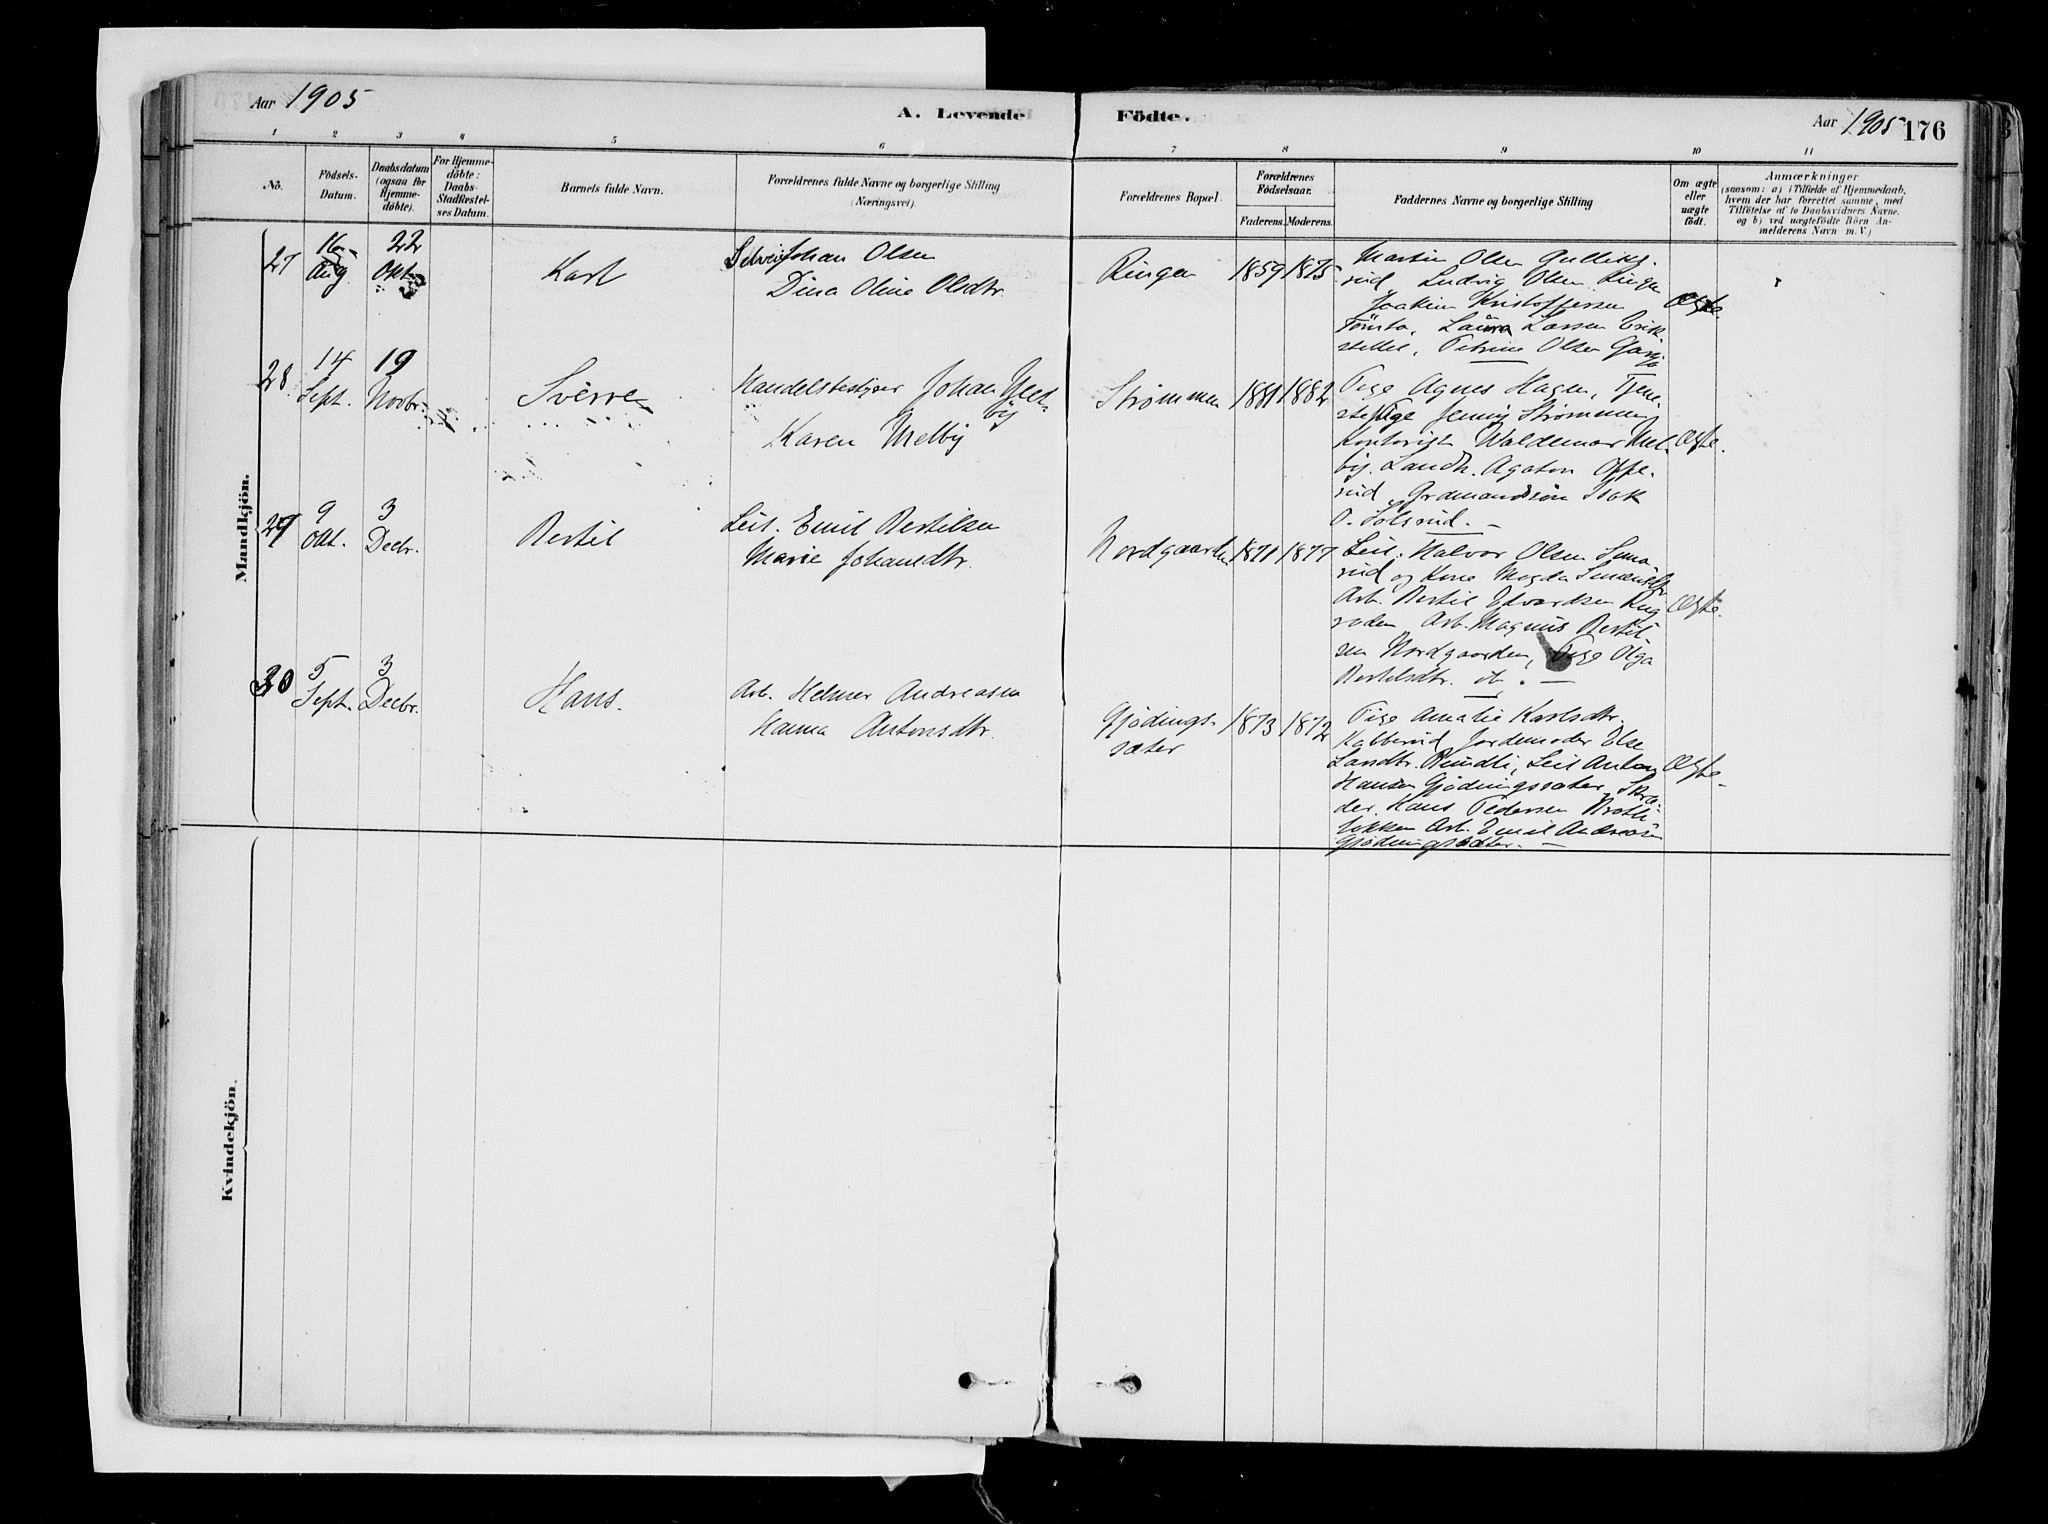 Aar 1905
A. Levende Födte.
Aar 1905 176
1 2 3 4 5 6 7 8 9 10 11
No.
Födsels-Datum.
Daabsdatum (ogsaa for Hjemme-döbte).
For Hjemme-döbte: Daabs-Stadfæstel-ses Datum.
Barnets fulde Navn.
Forældrenes fulde Navne og borgerlige Stilling (Næringsvei).
Forældrenes Bopæl.
Forældrenes Födselsaar.
Faderens. Moderens.
Faddernes Navne og borgerlige Stilling
Om ægte eller uægte födt.
Anmærkninger
(saasom: a) i Tilfælde af Hjemmedaab,
hvem der har forrettet samme, med
Tilföielse af to Daabsvidners Navne.
og b) ved uægtefödte Börn An-
melderens Navn m. V.)
Mandkjön.
27 16 Aug 22 Oktr Karl
Selvei Johan Olsen
Dina Oline Olsdtr.
Ringen 1859 1875
Martin Olsen Gulliks-
rud, Ludvig Olsen Ringen
Joakim Kristoffersen
Tömta, Laura Larsen Erik-
stellet, Petrine Olsen
Ægte.
28 14 Sept. 19 Novbr. Sverre
Handelsbestyrer Johan Melby
Karen Melby
Strømmen 1881 1882
Pige Agnes Hagen, Tjene-
stepige Jenny Strømmen,
Kontorist Waldemar Mel-
by, Landh. Agaton Oppe-
rud, Grdmandssön Isak
O. Solsrud. —
Ægte.
29 9 Okt. 3 Decbr. Bertil
Leil. Emil Bertilsen
Marie Johansdtr.
Nordgaarden 1871 1877
Leil. Halvor Olsen Smaa-
rud og Kone Magda Smaarud,
Arb. Bertil Edvardsen
Arb. Magnus Bertil-
sen Nordgaarden, Pige Olga
Bertilsdtr. ib. —
Ægte.
30 5 Sept. 3 Decbr. Hans.
Arb. Helmer Andreasen
Hanna Antonsdtr.
Gjødings-
sæter 1873 1872
Pige Amalie Karlsdtr.
Kabberud, Jordemoder Else
Landtr. Leil Anton
Hansen Gjødingssæter, Skræ-
der Hans Pedersen
løkken Arb. Emil Andreasen
Gjødingssæter. —
Ægte.
Kvindekjön.